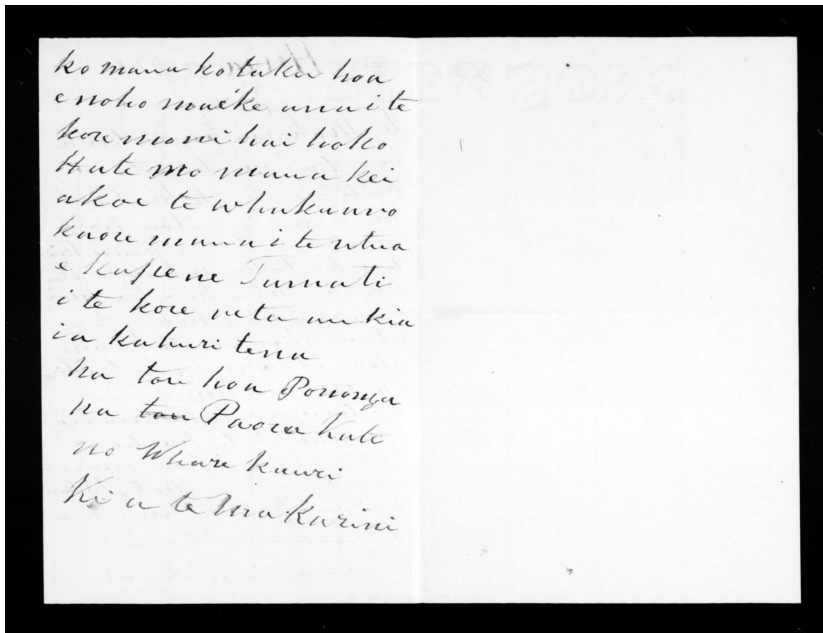 ko maua ko taku hoa
e noho mauéke ana i te
kore moni hai hoko
Hate mo maua kei
a koe te whakaaro
kaore maua i te utua
e kapene Tamati
i te kore reta au kia
ia kahuri tena
Na tou hoa Pononga
na tou Paora Kate
no Whare kauri
Ki a te Makarini